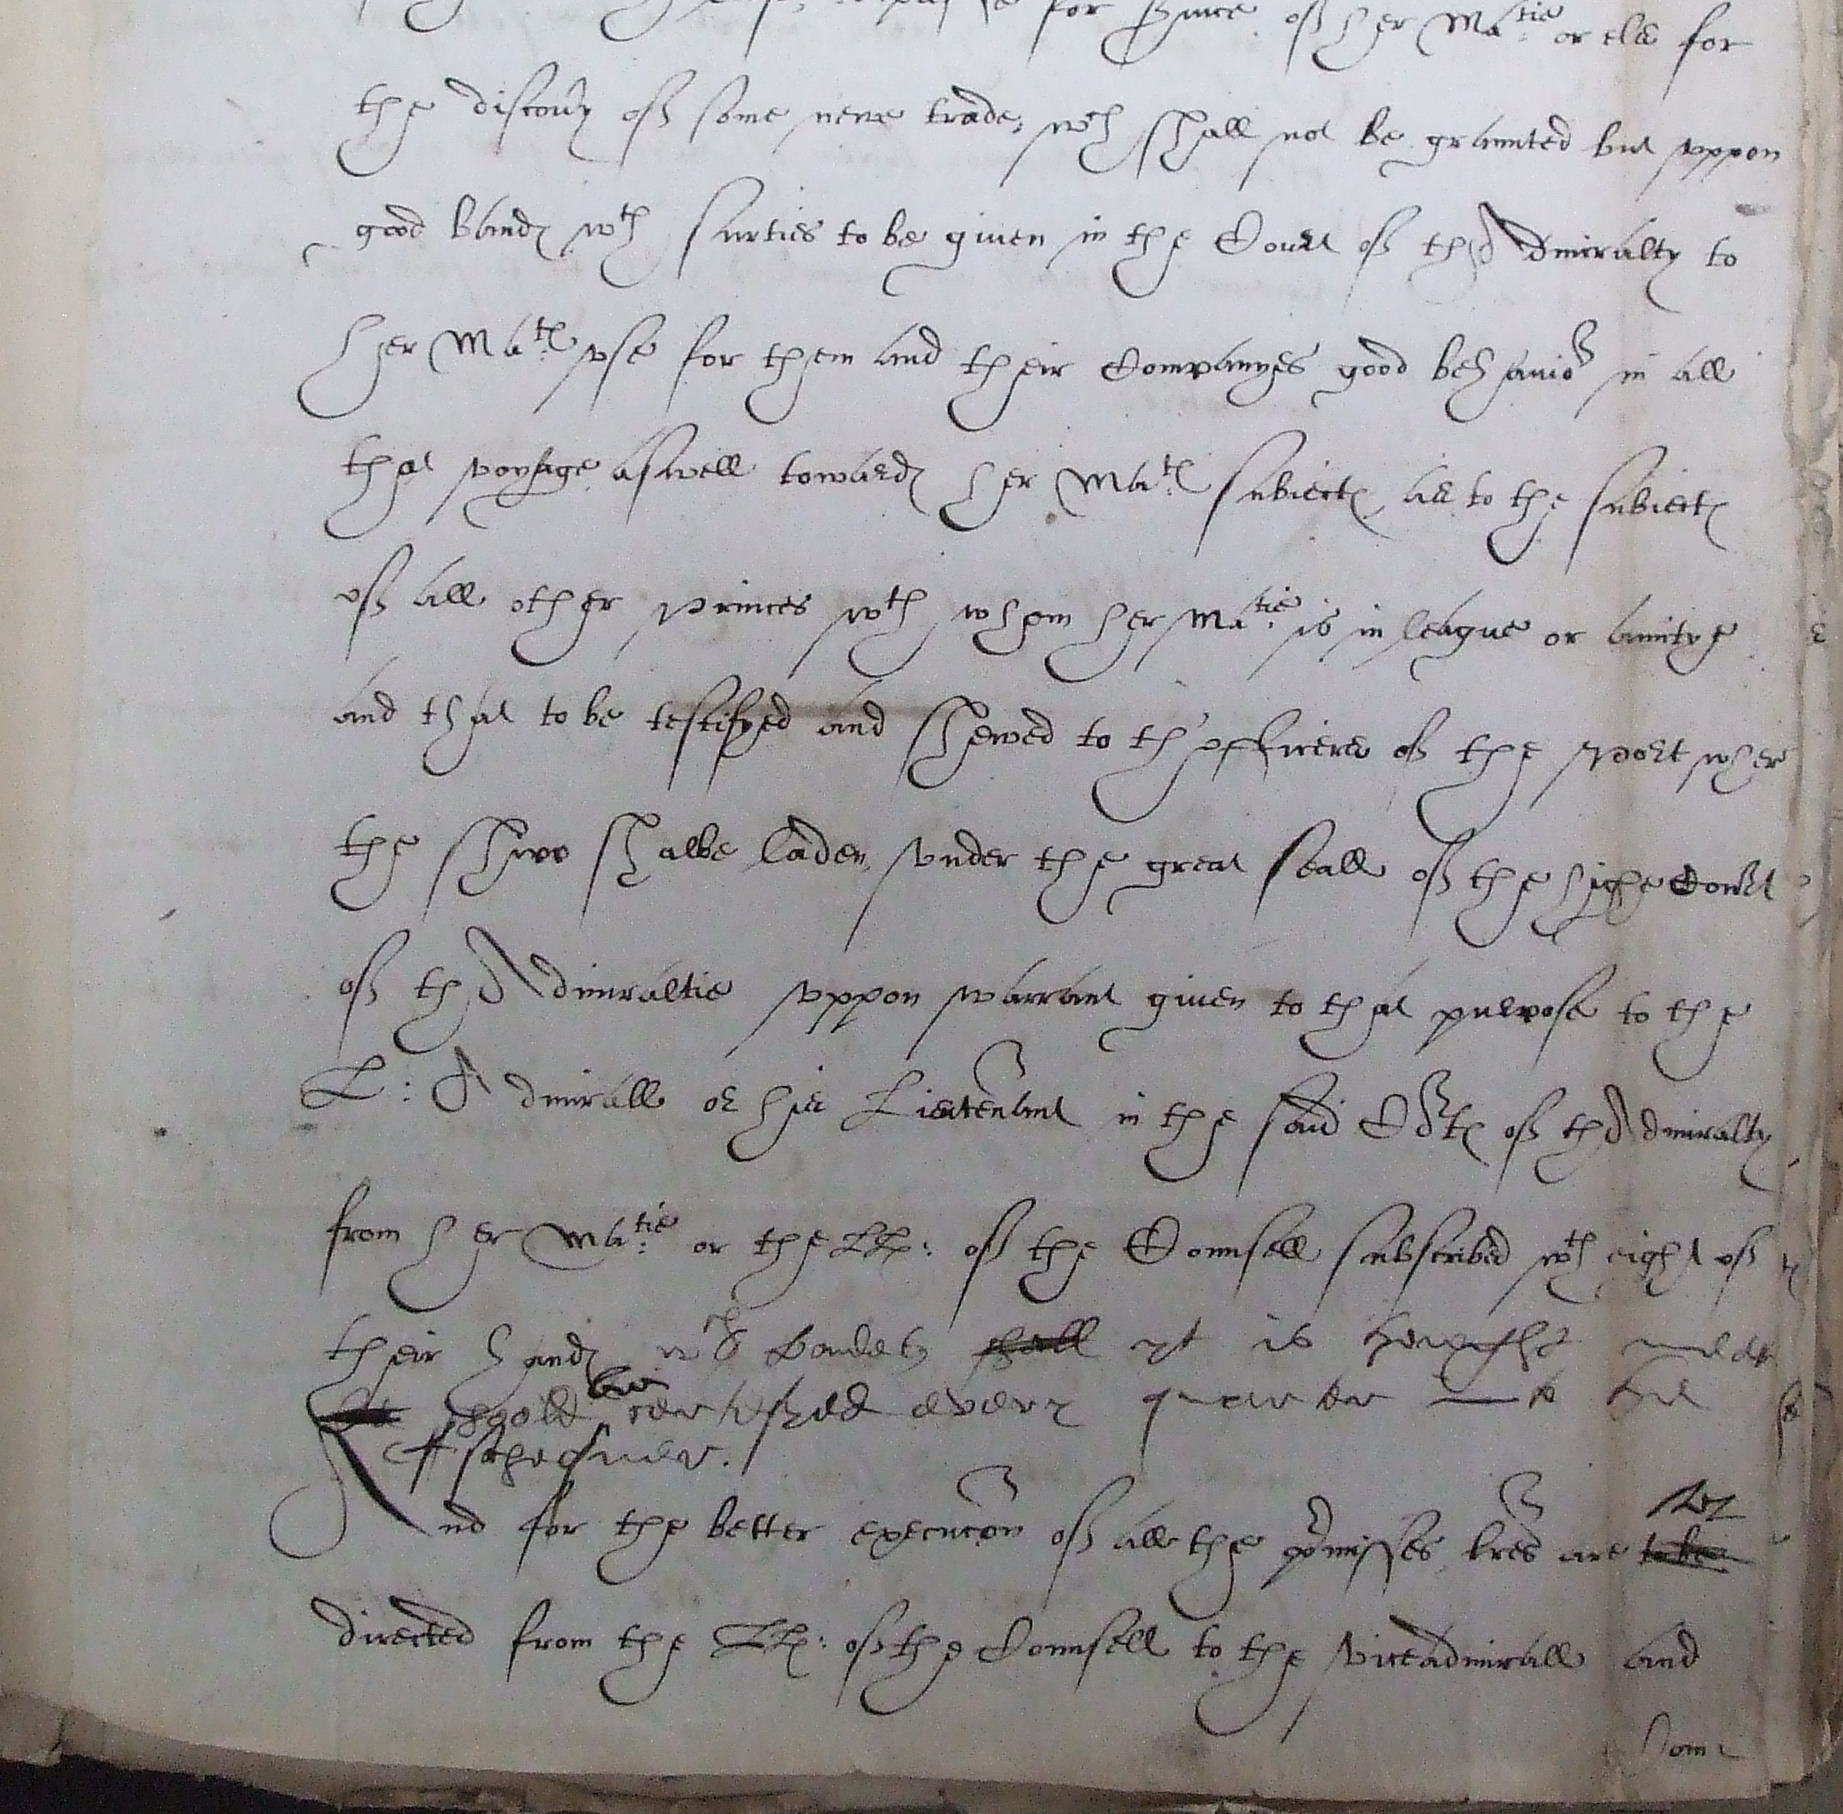 for service of her Ma:tie or els for
the discov'y of some newe trade, wch shall not be graunted but vppon
good bandes wth surties to be giuen in the Court of th'Admiralty to
her Ma:tes vse for them and their Companyes good behauior in all
that voyage aswell towardes her Ma:tes subiectes, as to the subiectes
of all other princes wth whom her Ma:tie is in league or amitye
and that to be testifyed and shewed to th'officers of the port wher
the ship shalbe laden, vnder the great seall of the highe Court
of th'Admiraltie vppon warrant giuen to that purpose to the
L: Admirall or his Lieutenant in the said Cortes of th'Admiralty
from her Ma:tie or the LLps: of the Counsell subscribed wth eight of
their handes wch bondes shall yt is thought mete
shold be certifyed every quarter into the
Eschequer.
And for the better execucon of all the p'misses, lres are to be
directed from the LLps: of the Counsell to the viceadmirall and
Com